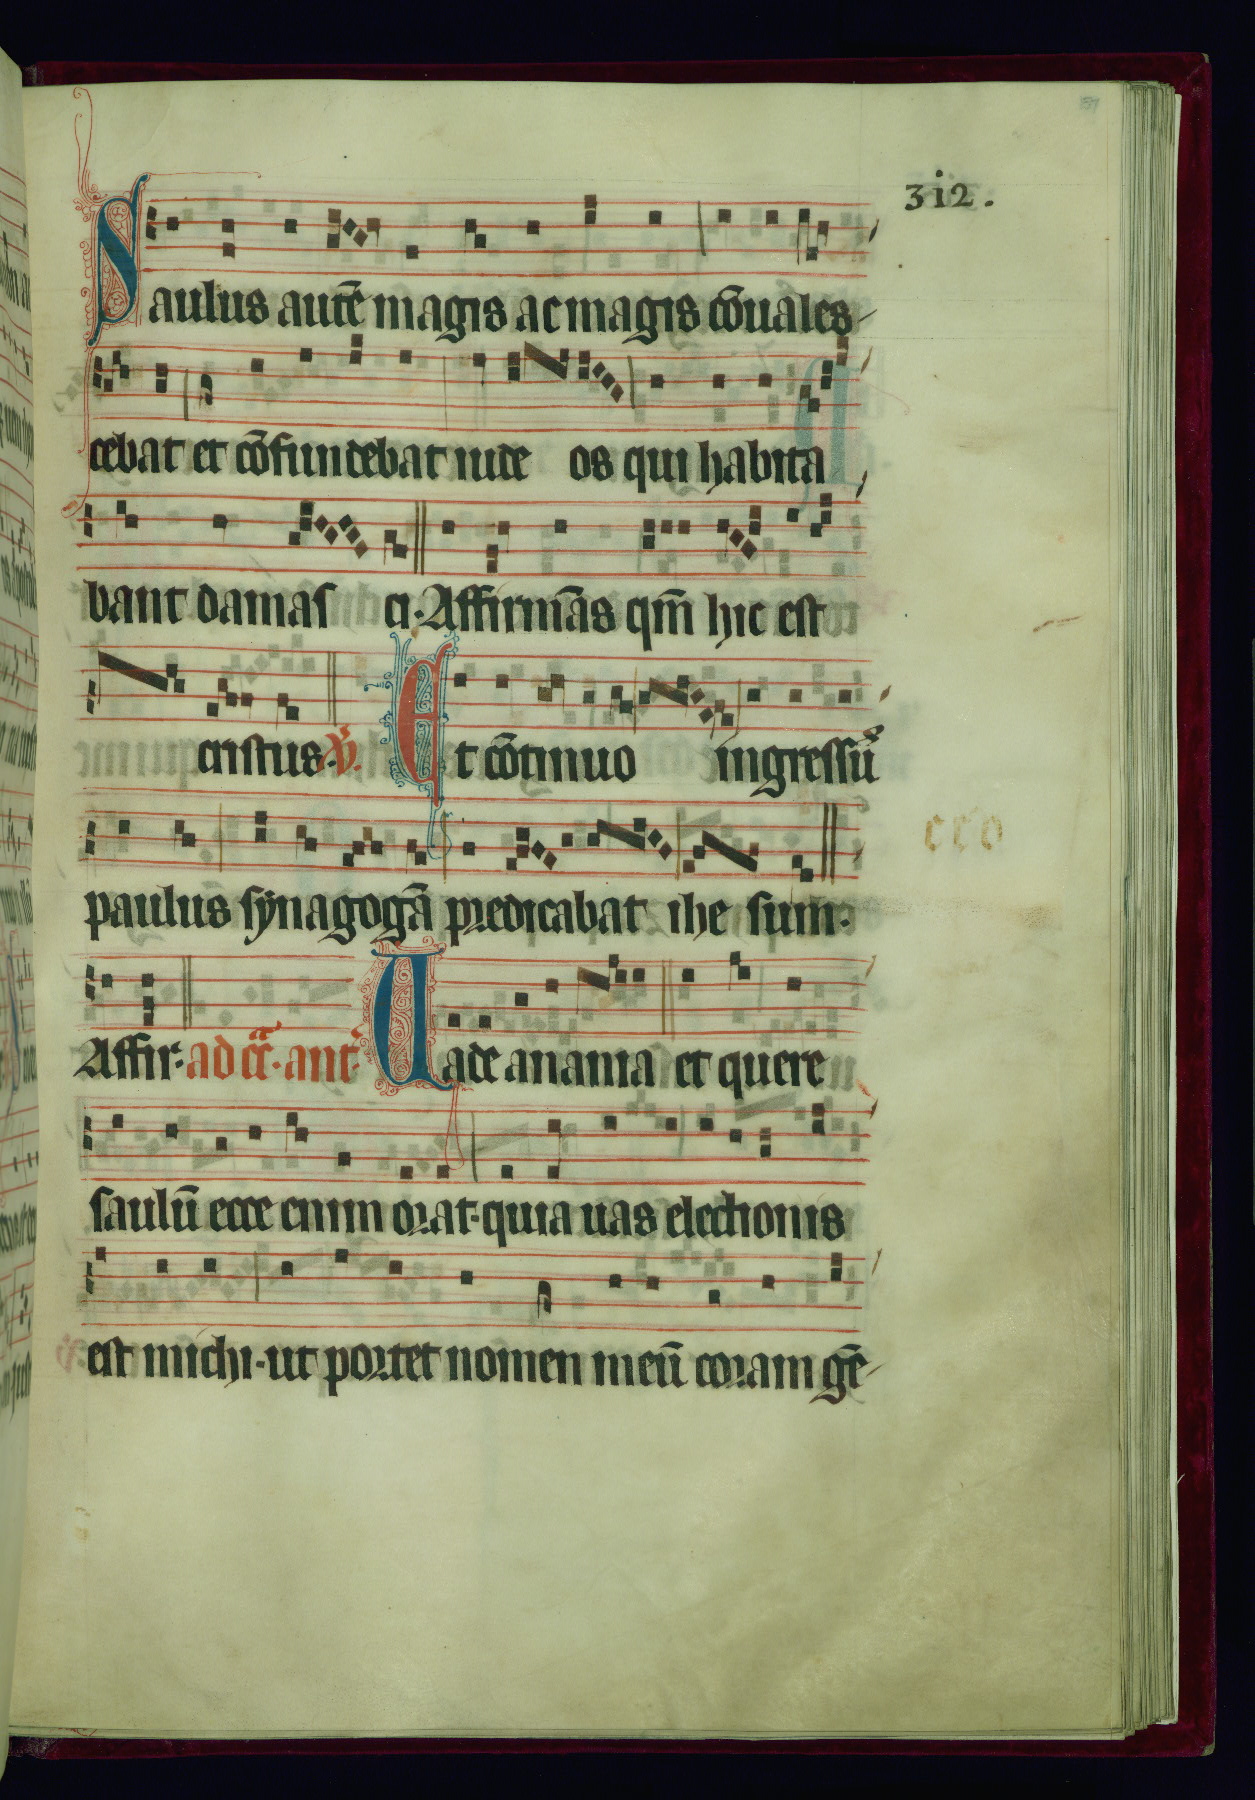 312.
Saulus autē magis ac magis cōuales
cebat et cōfundebat iude os qui habita
bant damas ci. Affirmās qm̄ hic est
cristus. V. Et cōtinuo ingressū
paulus synagogā predicabat ihe sum.
Affir. ad cā. ant. Uade anania et quere
saulū ecce enim orat. quia uas electionis
est michi. ut portet nomen meū coram gē